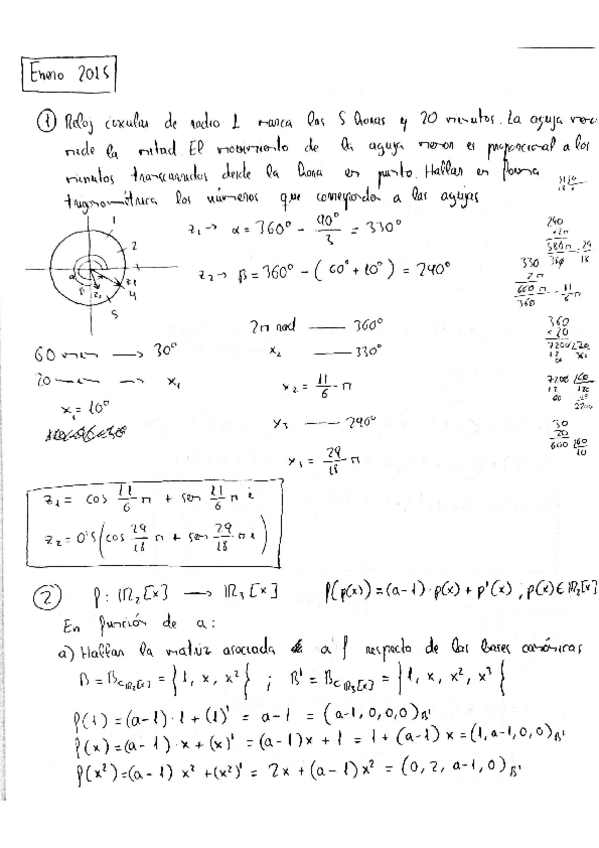 Enero 2015
① Reloj circular de radio 1 marca las 5 horas y 20 minutos. La aguja meno
mide la mitad. El movimiento de la aguja menor es proporcional a los
minutos transcurridos desde la hora en punto. Hallar en forma
trigonométrica los números que corresponden a las agujas
z₁ → α = 360° - 90°/3 = 330°
z₂ → β = 360° - (60° + 10°) = 290°
1
2
α
β
z₁
z₂
4
5
2π rad —— 360°
60 min → 30°
x₂ —— 330°
20 — → x₁
x₂ = 11/6 π
x₁ = 10°
x₃ —— 290°
x₃ = 29/18 π
z₁ = cos 11/6 π + sen 11/6 π i
z₂ = 0'5(cos 29/18 π + sen 29/18 π i)
② f: ℝ₂[x] → ℝ₃[x] f(p(x)) = (a-1)·p(x) + p'(x), p(x) ∈ ℝ₂[x]
En función de a:
a) Hallar la matriz asociada a f respecto de las bases canónicas
B = B_cℝ₂[x] = {1, x, x²} ; B' = B_cℝ₃[x] = {1, x, x², x³}
f(1) = (a-1)·1 + (1)' = a-1 = (a-1,0,0,0)_B'
f(x) = (a-1)·x + (x)' = (a-1)x + 1 = 1 + (a-1)x = (1,a-1,0,0)_B'
f(x²) = (a-1) x² + (x²)' = 2x + (a-1)x² = (0,2,a-1,0)_B'